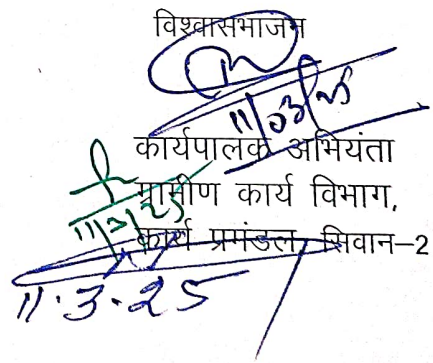 विश्वासभाजन
11/03/25
कार्यपालक अभियंता
ग्रामीण कार्य विभाग,
11/3/25
कार्य प्रमंडल, सिवान-2
11.3.25